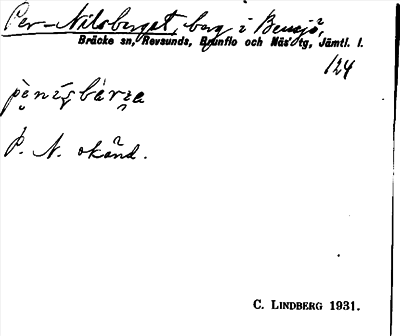 Per-Nilsberget, berg i Bensjö,
Bräcke sn, Revsunds, Brunflo och Näs' tg, Jämtl. l.
124
P. N. okänd.
C. LINDBERG 1931.